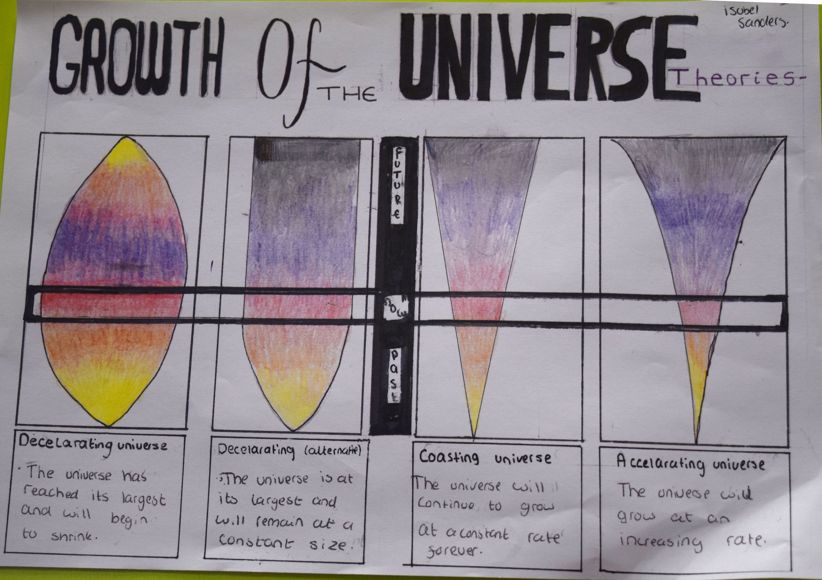 isobel
Sanders.
GROWTH Of THE UNIVERSE
Theories-
FUTURE
NOW
PAST
Decelarating universe
The universe has
reached its largest
and will begin
to shrink.
Decelarating (alternatie)
The universe is at
its largest and
will remain at a
constant size.
Coasting universe
The universe will
continue to grow
at a constant rate
forever.
Accelarating universe
The universe will
grow at an
increasing rate.